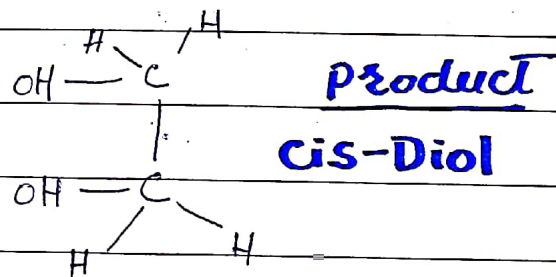 H H
OH — C
Product
Cis-Diol
OH — C
H H